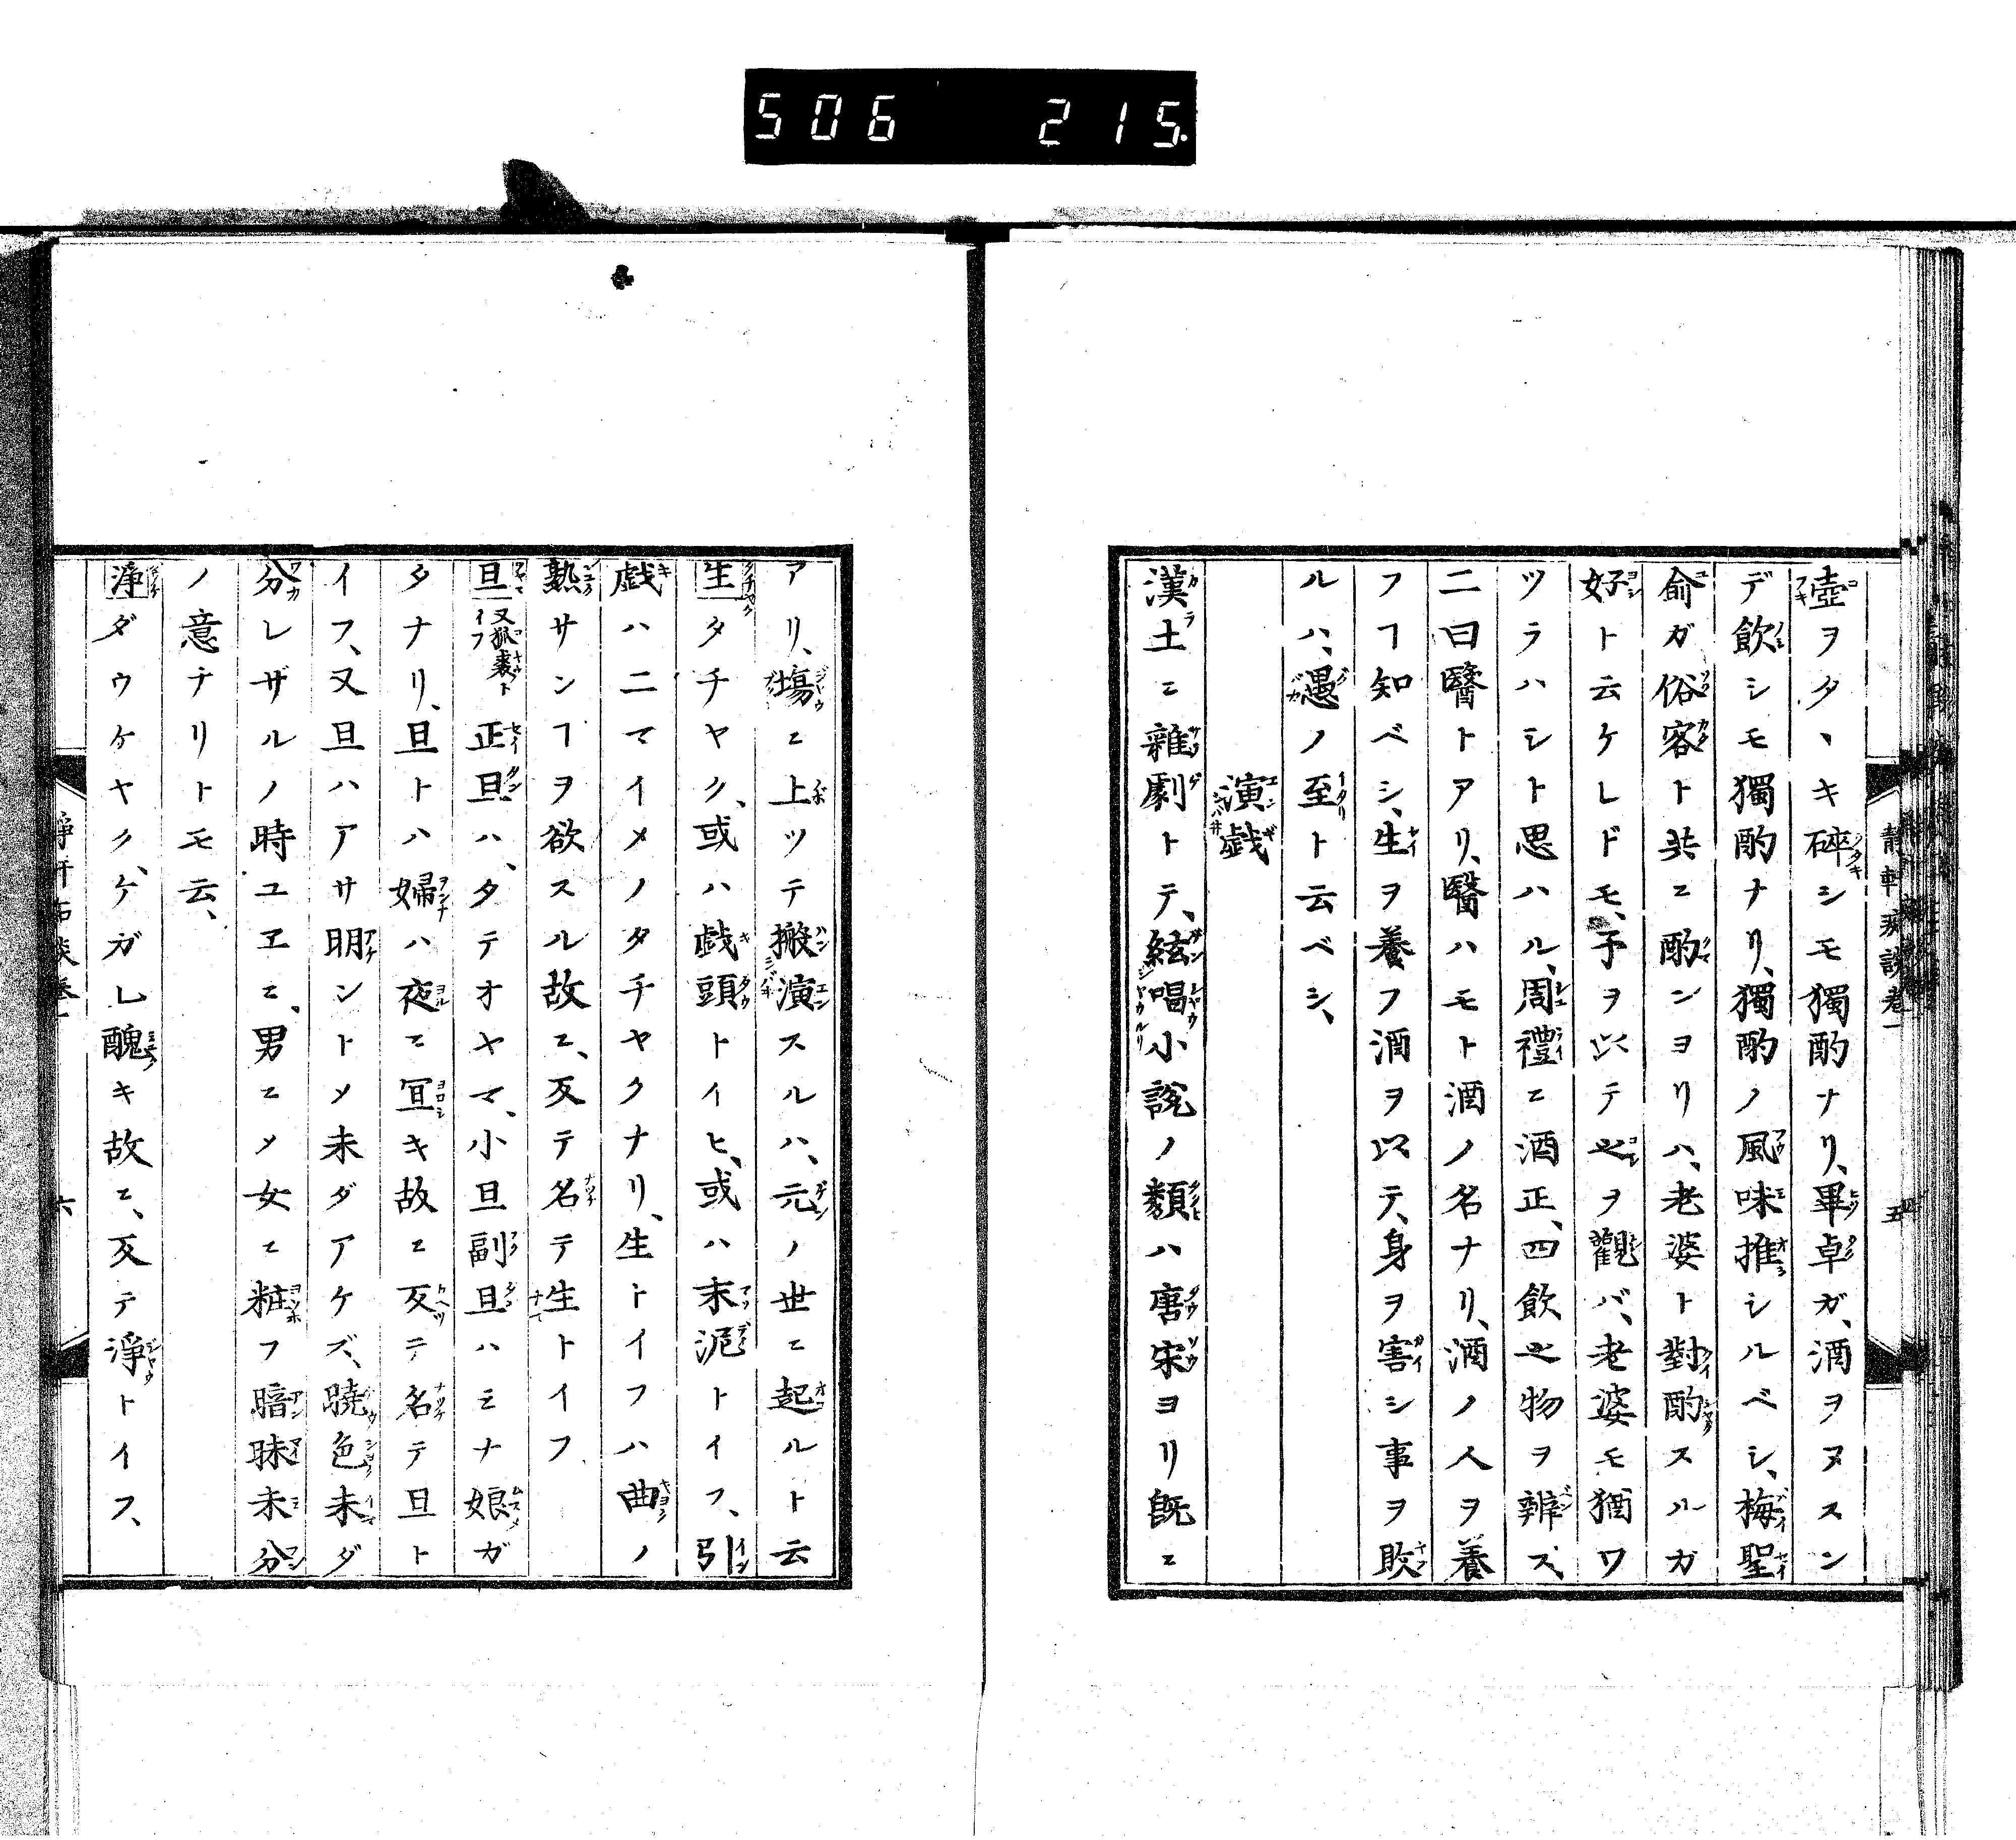 506 215
靜軒痴談卷一
五
壺ヲタヽキ碎シモ獨酌ナリ、畢卓ガ、酒ヲヌスン
デ飲シモ獨酌ナリ、獨酌ノ風味推シルベシ、梅聖
兪ガ俗客ト共ニ酌ンヨリハ、老婆ト對酌スルガ
好ト云ケレドモ、予ヲ以テ之ヲ觀バ、老婆モ猶ワ
ツラハシト思ハル、周禮ニ酒正、四飲之物ヲ辨ズ、
二曰醫トアリ、醫ハモト酒ノ名ナリ、酒ノ人ヲ養
フヿ知ベシ、生ヲ養フ酒ヲ以テ、身ヲ害シ事ヲ敗
ルハ、愚ノ至ト云ベシ、
演戯
漢土ニ雜劇トテ、絃唱小説ノ類ハ唐宋ヨリ既ニ
アリ、塲ニ上ツテ搬演スルハ、元ノ世ニ起ルト云
生タチヤク、或ハ戯頭トイヒ、或ハ末泥トイフ、引
戯ハ二マイメノタチヤクナリ、生トイフハ曲ノ
熟サンヿヲ欲スル故ニ、反テ名テ生トイフ
旦又狐裘トイフ正旦ハ、タテオヤマ、小旦副旦ハミナ娘ガ
タナリ、旦トハ婦ハ夜ニ宜キ故ニ反テ名テ旦ト
イフ、又旦ハアサ明ントメ未ダアケズ、曉色未ダ
分レザルノ時ユヱニ、男ニメ女ニ粧フ暗昧未分
ノ意ナリトモ云、
淨ダウケヤク、ケガレ醜キ故ニ、反テ淨トイフ、
六